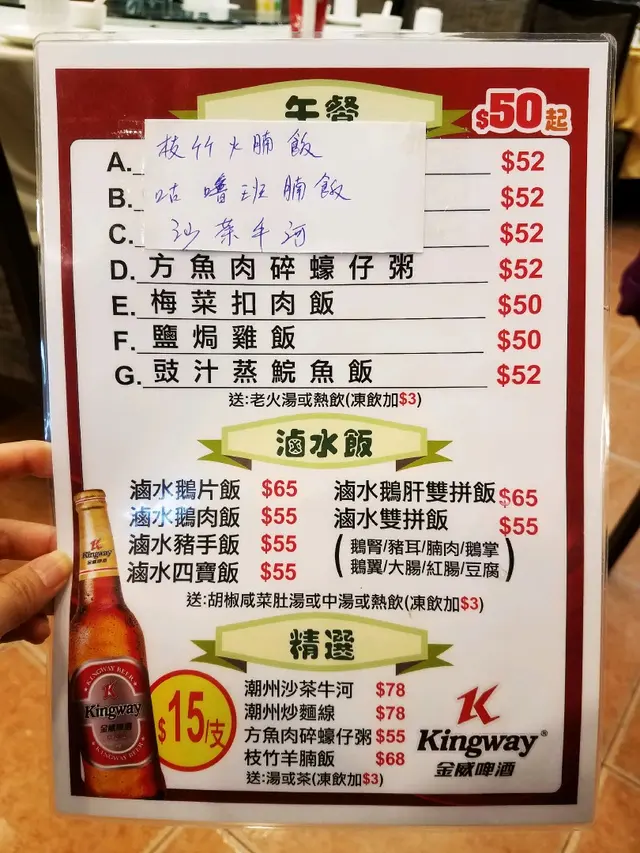 午餐
$50起
A. 枝竹火腩飯 $52
B. 咕嚕班腩飯 $52
C. 沙茶牛河 $52
D. 方魚肉碎蠔仔粥 $52
E. 梅菜扣肉飯 $50
F. 鹽焗雞飯 $50
G. 豉汁蒸鯇魚飯 $52
送:老火湯或熱飲(凍飲加$3)
滷水飯
滷水鵝片飯 $65
滷水鵝肉飯 $55
滷水豬手飯 $55
滷水四寶飯 $55
滷水鵝肝雙拼飯 $65
滷水雙拼飯 $55
(鵝腎/豬耳/腩肉/鵝掌
鵝翼/大腸/紅腸/豆腐)
送:胡椒咸菜肚湯或中湯或熱飲(凍飲加$3)
精選
潮州沙茶牛河 $78
潮州炒麵線 $78
方魚肉碎蠔仔粥 $55
枝竹羊腩飯 $68
送:湯或茶(凍飲加$3)
$15/支
Kingway®
金威啤酒
Kingway
金威啤酒
KINGWAY BEER
Kingway
金威啤酒
KINGWAY BEER